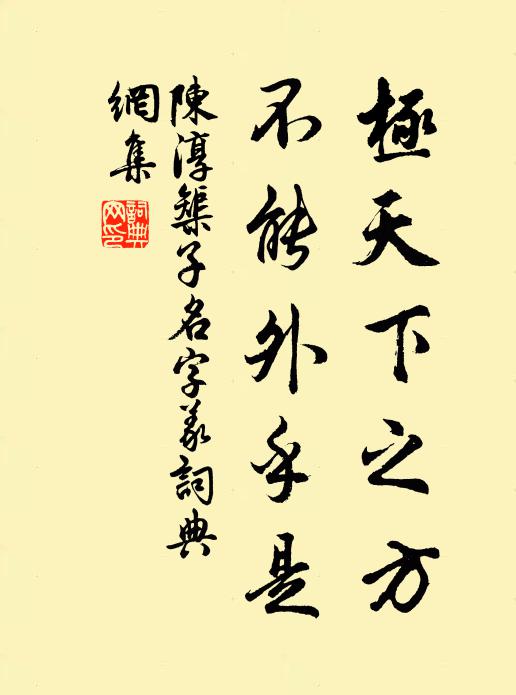 極天下之方
不能外乎是
陳淳榘子名字義詞典
網集
詞典
网印